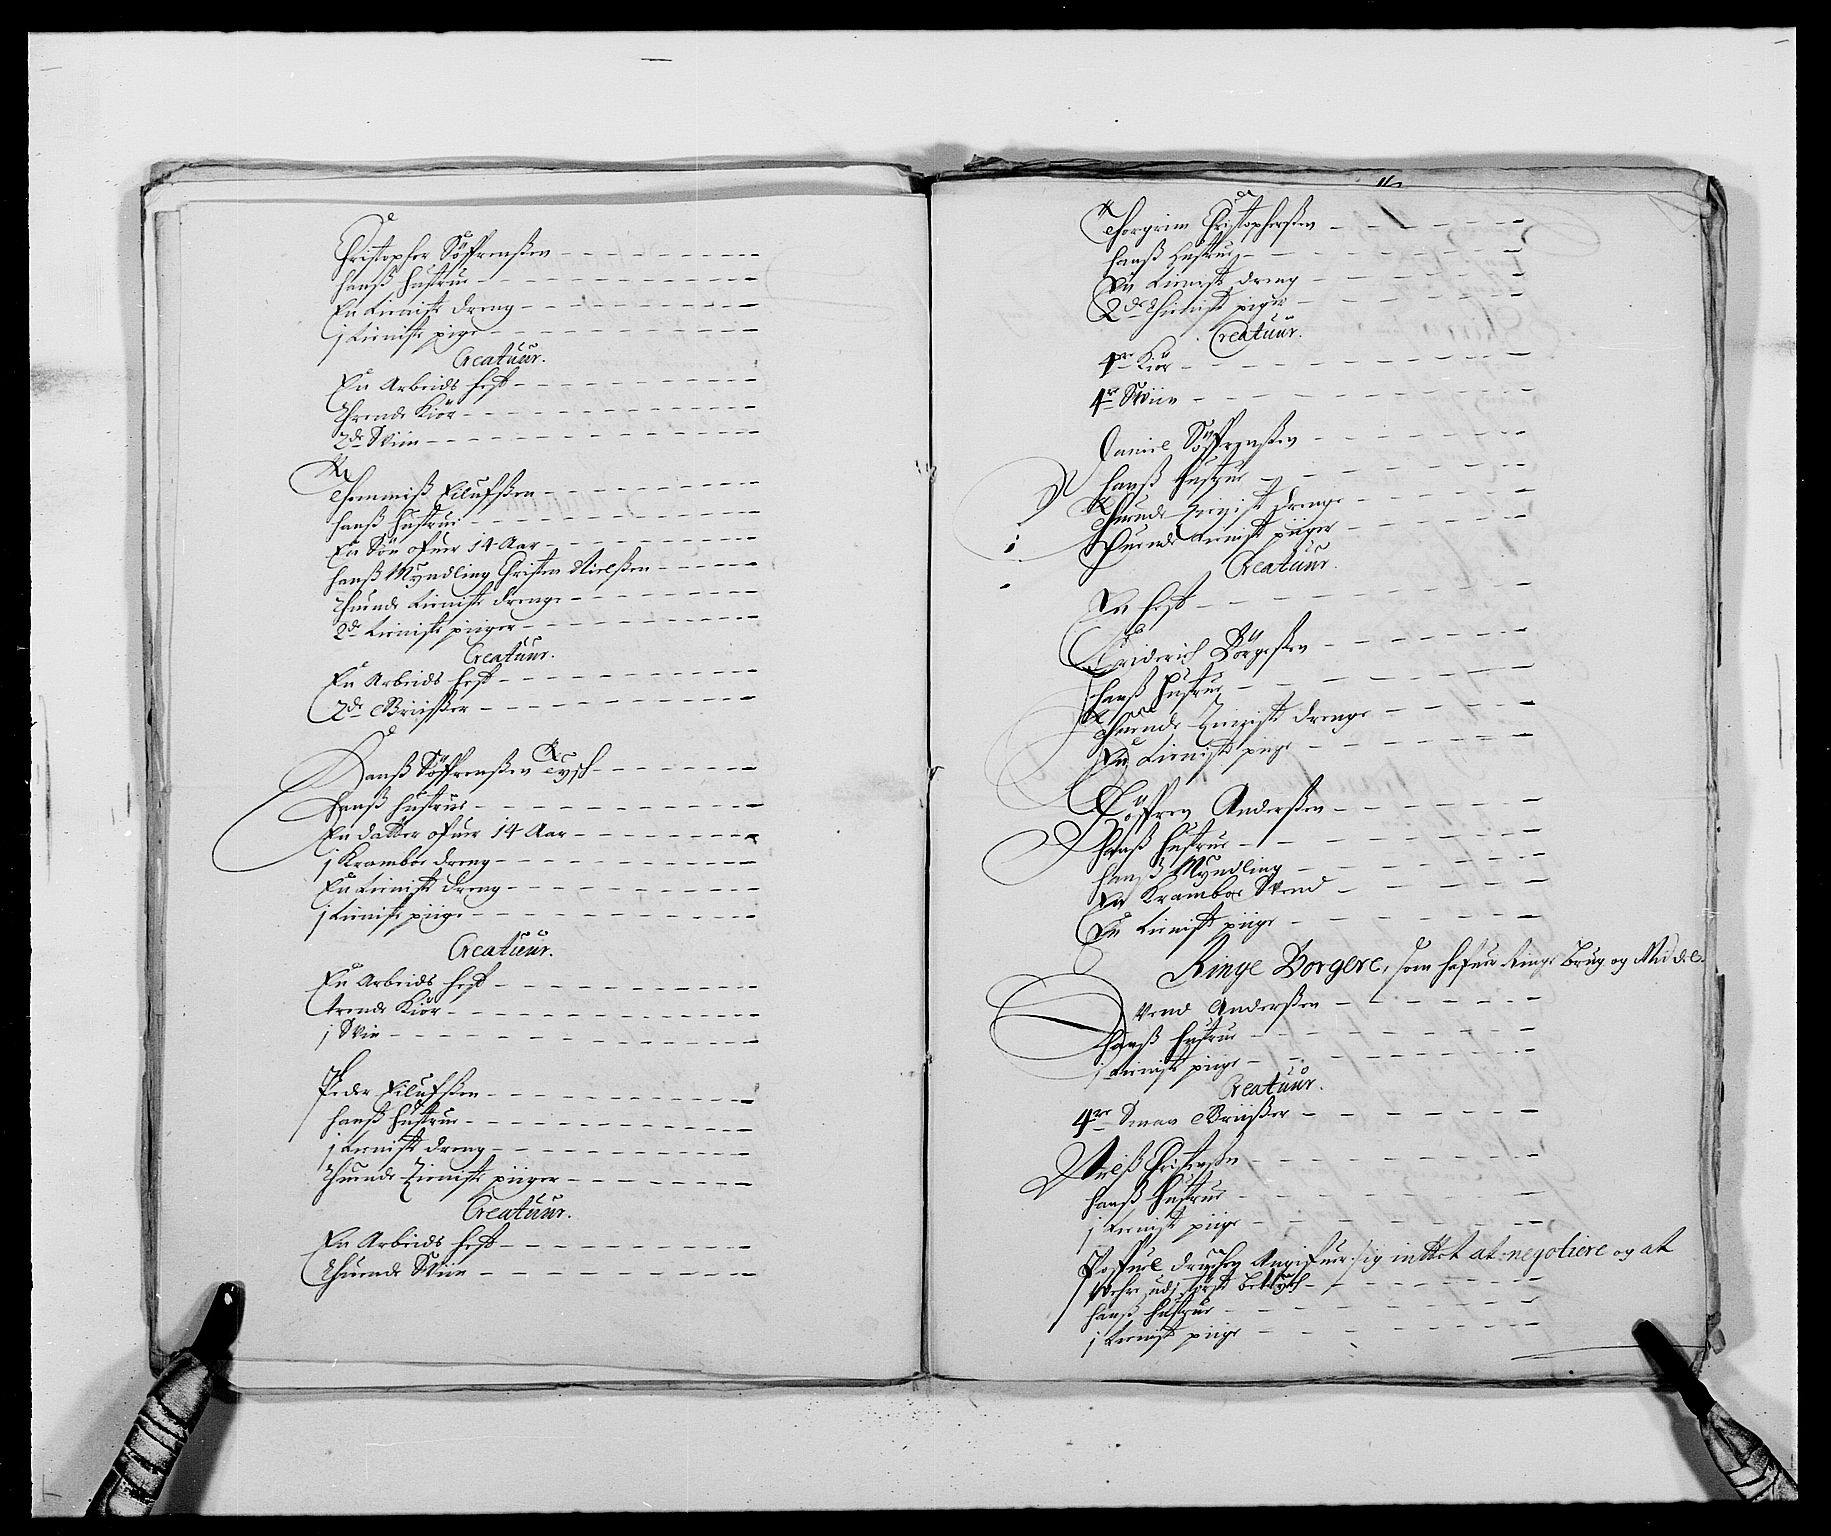 Christopher Söffrenßen
hanß hustrue
En tieniste dreng
1 tieniste pige
Creatuur.
En Arbeids hest
Thrende Kiör
2de Sviin
Themmiß Eilufßen
hanß hustrue
En Sön ofuer 14 Aar
hanß Myndling Christen Nielßen
Thuende tieniste drenge
2de tieniste piiger
Creatuur.
En Arbeids hest
2de Bæuster
Hanß Söffrenßen Tysch
hanß hustrue
En datter ofuer 14 Aar
1 Kramboe dreng
En tieniste dreng
1 tieniste piige
Creatuur.
En Arbeids hest
trende Kiör
1 Sviin
Peder Eilufßen
hanß hustrue
1 tieniste dreng
Thuende tieniste piiger
Creatuur.
En Arbeids hest
Thuende Sviin
Thorgrim Christopherßen
hanß hustrue
En tieniste dreng
2de thieniste piger
Creatuur.
4re Kiör
4re Sviin
Daniel Söffrenßen
hanß hustrue
Thuende tieniste drenge
Thuende tieniste piiger
Creatuur.
En hest
Friderich Börgeßen
hanß hustrue
Thuende tieniste drenge
En tieniste piige
Söffren Anderßen
hanß hustrue
hanß Myndling
En Kramboe Svend
En tieniste piige
Ringe Borgere, som hafuer Ringe Brug og Middel.
Svend Anderßen
hanß hustrue
1 tieniste piige
Creatuur.
4re Smaa
Nielß Christenßen
hanß hustrue
1 tieniste piige
Angifuer sig intet at negotiere og at
hanß hustrue
1 tieniste piige